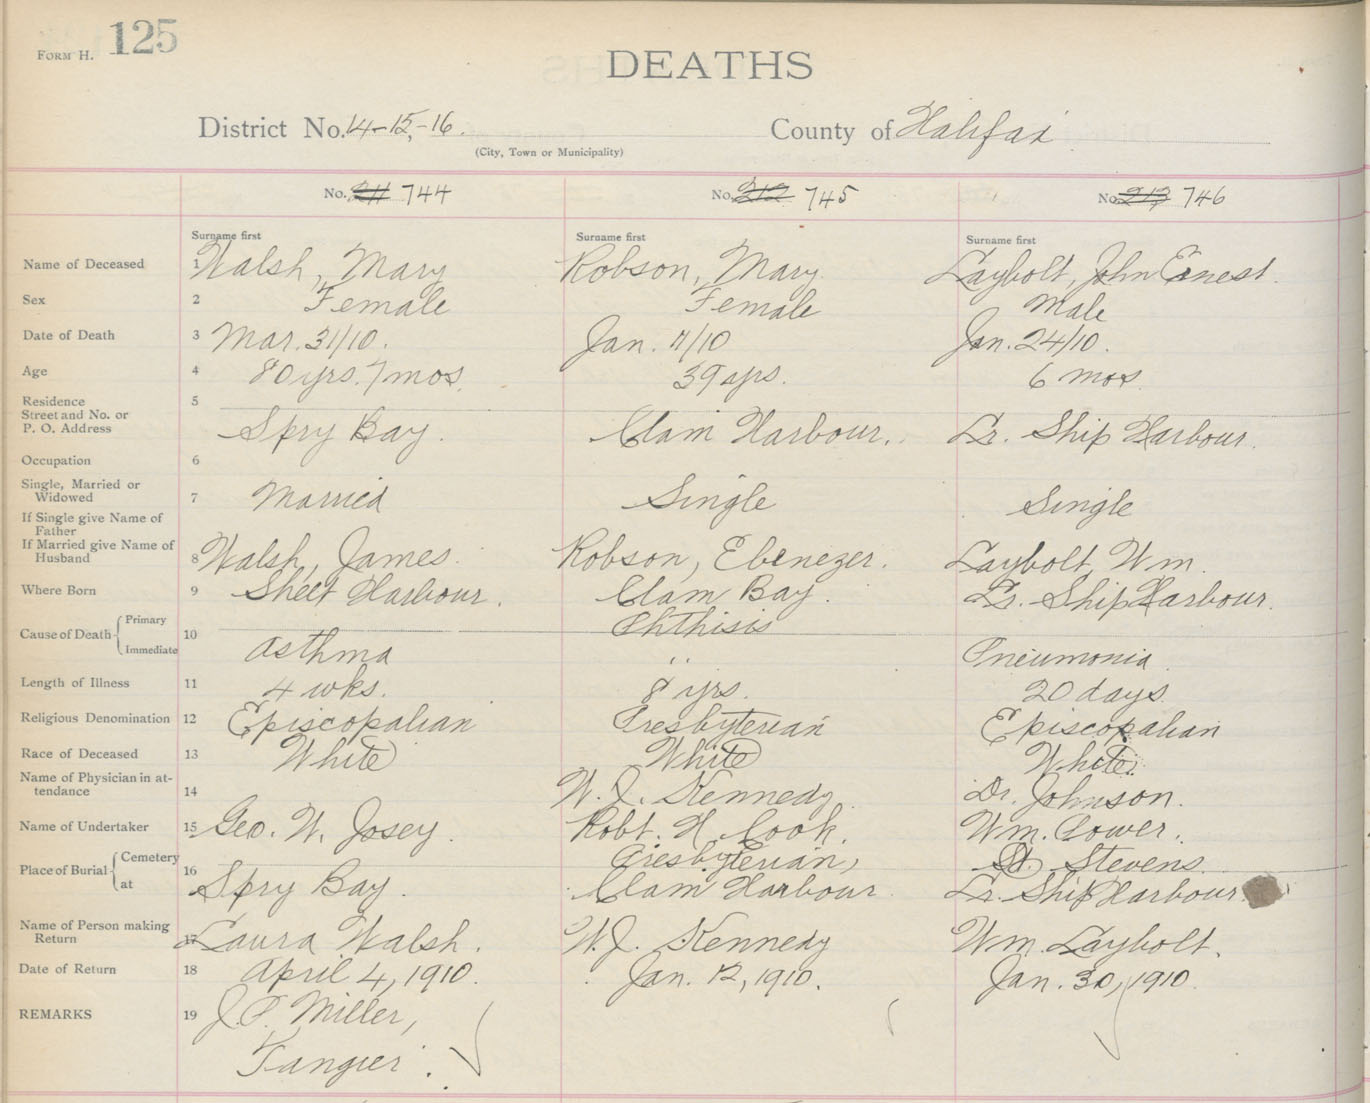 FORM H. 125
DEATHS
District No. 14-15,-16. County of Halifax
(City, Town or Municipality)
No. 211 744 No. 212 745 No. 213 746
Surname first Surname first Surname first
Name of Deceased 1 Walsh, Mary Robson, Mary Laybolt, John Ernest.
Sex 2 Female Female Male
Date of Death 3 Mar. 31/10. Jan. 11/10 Jan. 24/10.
Age 4 80 yrs. 7 mos. 39 yrs. 6 mos.
Residence 5
Street and No. or
P. O. Address Spry Bay. Clam Harbour. Lr. Ship Harbour.
Occupation 6
Single, Married or
Widowed 7 Married Single Single
If Single give Name of
Father
If Married give Name of
Husband 8 Walsh, James. Robson, Ebenezer. Laybolt, Wm.
Where Born 9 Sheet Harbour. Clam Bay. Lr. Ship Harbour.
Cause of Death Primary 10 Phthisis
Immediate Asthma " Pneumonia.
Length of Illness 11 4 wks. 8 yrs. 20 days.
Religious Denomination 12 Episcopalian Presbyterian Episcopalian
Race of Deceased 13 White White White.
Name of Physician in at-
tendance 14 W. J. Kennedy. Dr. Johnson.
Name of Undertaker 15 Geo. W. Josey. Robt. H. Cook. Wm. Power.
Place of Burial Cemetery 16 Presbyterian, St. Stevens.
at Spry Bay. Clam Harbour. Lr. Ship Harbour.
Name of Person making
Return 17 Laura Walsh. W. J. Kennedy Wm. Laybolt.
Date of Return 18 April 4, 1910. Jan. 12, 1910. Jan. 30, 1910.
REMARKS 19 J. P. Miller,
Tangier.